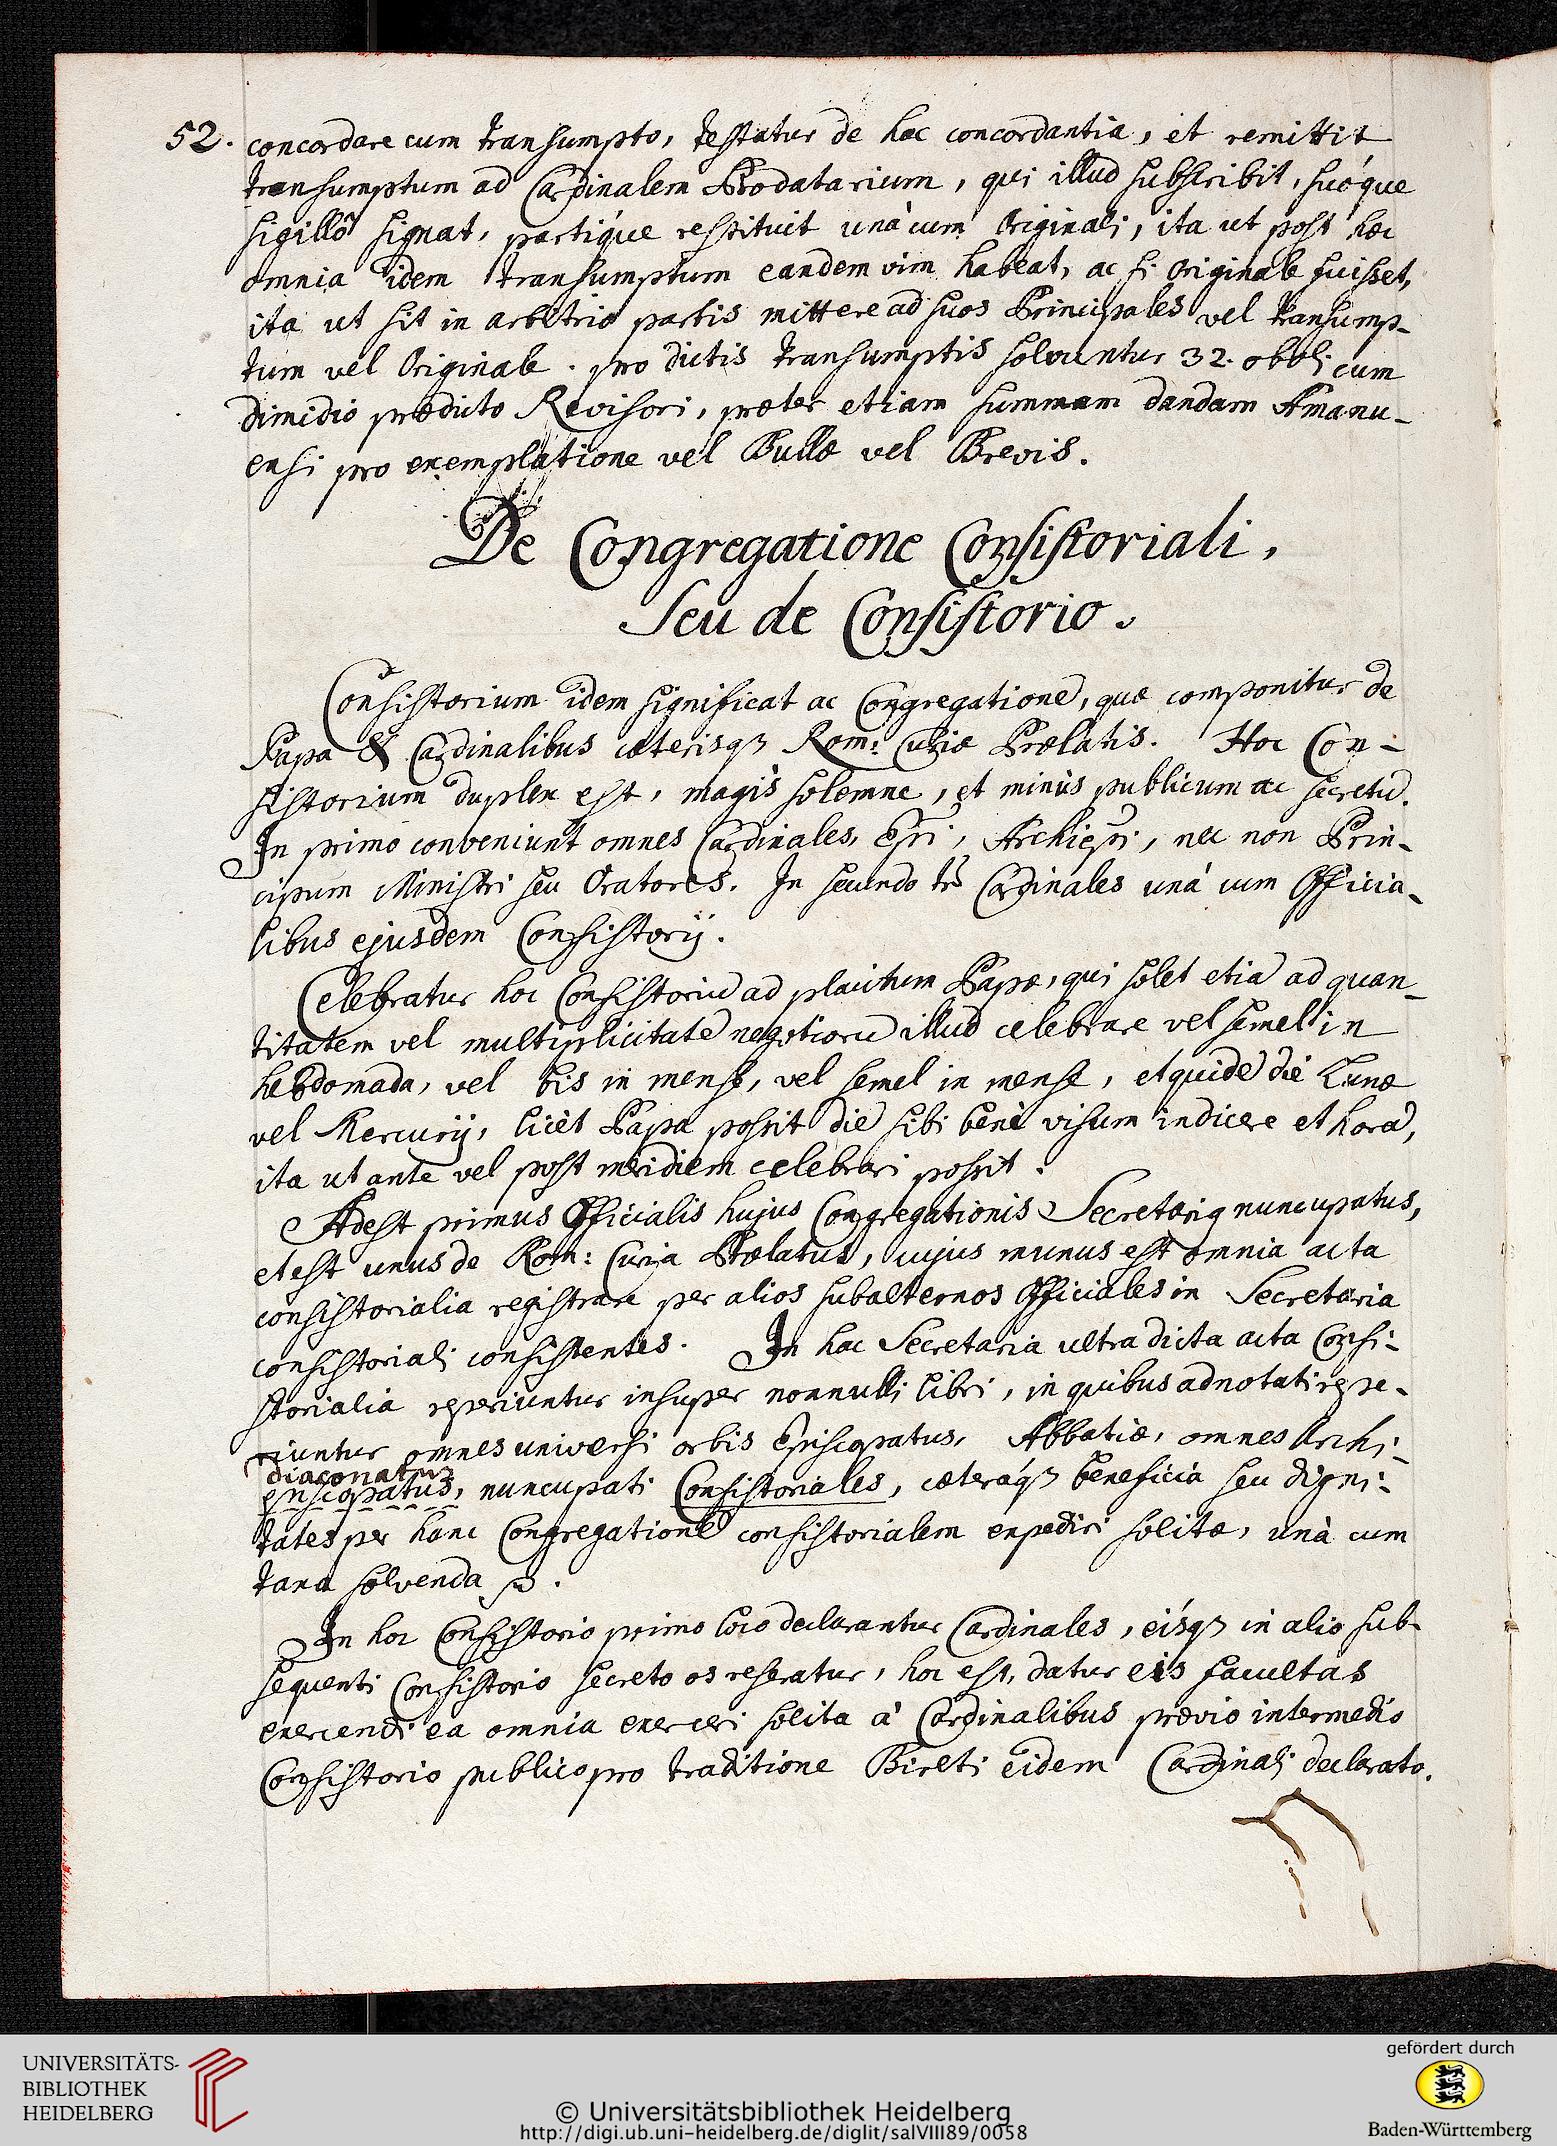 52. concordare cum transumpto, testatur de hac concordantia, et remittit
transumptum ad Cardinalem Prodatarium, qui illud subscribit, suóque
sigillô signat, partíque restituit unà cum Originali, ita ut post hæc
omnia idem transumptum eandem vim habeat, ac si Originale fuisset,
ita ut sit in arbitrio partis mittere ad suos Principales vel transump-
tum vel Originale. pro dictis transumptis solvuntur 32. oboli cum
dimidio prædicto Revisori, præter etiam summam dandam Amanu-
ensi pro exemplatione vel Bullæ vel Brevis.
De Congregatione Consistoriali,
Seu de Consistorio.
Consistorium idem significat ac Congregationē, quæ componitur de
Papa & Cardinalibus cæterisqꝫ Rom: Curiæ Prælatis. Hoc Con-
sistorium duplex est, magìs solemne, et minùs publicum ac secretū.
In primo conveniunt omnes Cardinales, Epi, Archiepi, nec non Prin-
cipum Ministri seu Oratores. In secundo tm̄ Cardinales unà cum Officia-
libus ejusdem Consistorij.
Celebratur hoc Consistoriū ad placitum Papæ, qui solet etiā ad quan-
titatem vel multiplicitatē negotiorū illud celebrare vel semel in
hebdomada, vel bis in mense, vel semel in mense, et quidē die Lunæ
vel Mercurij, licèt Papa possit diē sibi benè visum indicere et horā,
ita ut ante vel post meridiem celebrari possit.
Adest primus Officialis hujus Congregationis Secretariꝰ nuncupatus,
et est unus de Rom: Curia Prælatus, cujus munus est omnia acta
consistorialia registrare per alios subalternos Officiales in Secretaria
consistoriali consistentes. In hac Secretaria ultra dicta acta Consi-
storialia reperiuntur insuper nonnulli libri, in quibus adnotati repe-
riuntur omnes universi orbis Episcopatus, Abbatiæ, omnes Archi-
diaconatus
episcopatus, nuncupati Consistoriales, cæteráqꝫ beneficia seu digni-
tates per hanc Congregationē consistorialem expediri solitæ, unà cum
taxa solvenda .
In hoc Consistorio primo loco declarantur Cardinales, eísqꝫ in alio sub-
sequenti Consistorio secreto os reseratur, hoc est, datur eis facultas
exercendi ea omnia exerceri solita à Cardinalibus prævio intermedio
Consistorio publico pro traditione Bireti eidem Cardinali declarato.
UNIVERSITÄTS-
BIBLIOTHEK
HEIDELBERG
© Universitätsbibliothek Heidelberg
http://digi.ub.uni-heidelberg.de/diglit/salVIII89/0058
gefördert durch
Baden-Württemberg